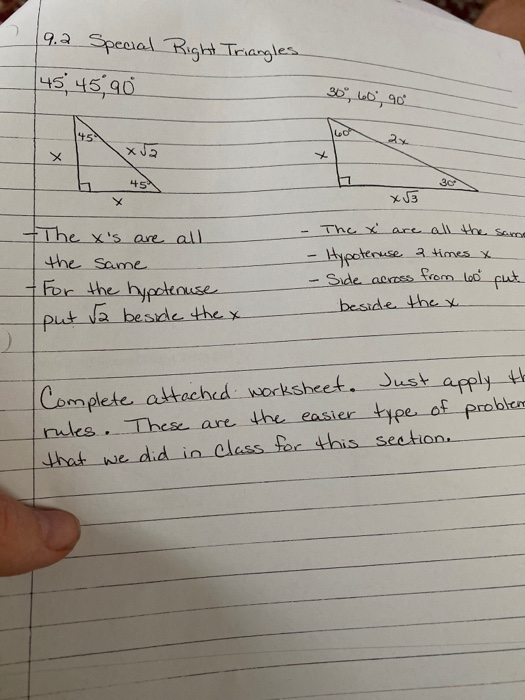 9.2 Special Right Triangles
45°, 45°, 90°
45°
x
x√2
45°
x
- The x's are all
the same
- For the hypotenuse
put √2 beside the x
30°, 60°, 90°
60°
2x
x
30°
x√3
- The x' are all the same
- Hypotenuse 2 times x
- Side across from 60° put
beside the x
Complete attached worksheet. Just apply th
rules. These are the easier type of problem
that we did in class for this section.